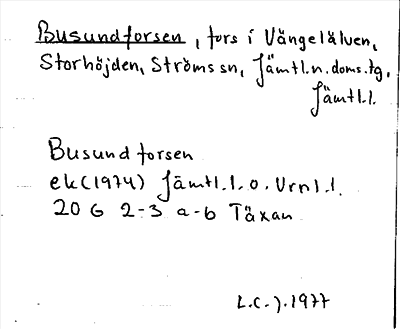 Busundforsen, fors i Vängelälven,
Storhöjden, Ströms sn, Jämtl.n.doms.tg,
Jämtl.l.
Busundforsen
ek(1974) Jämtl.l.o. Vrnl.l.
20 G 2-3 a-b Täxan
L.C.J.1977